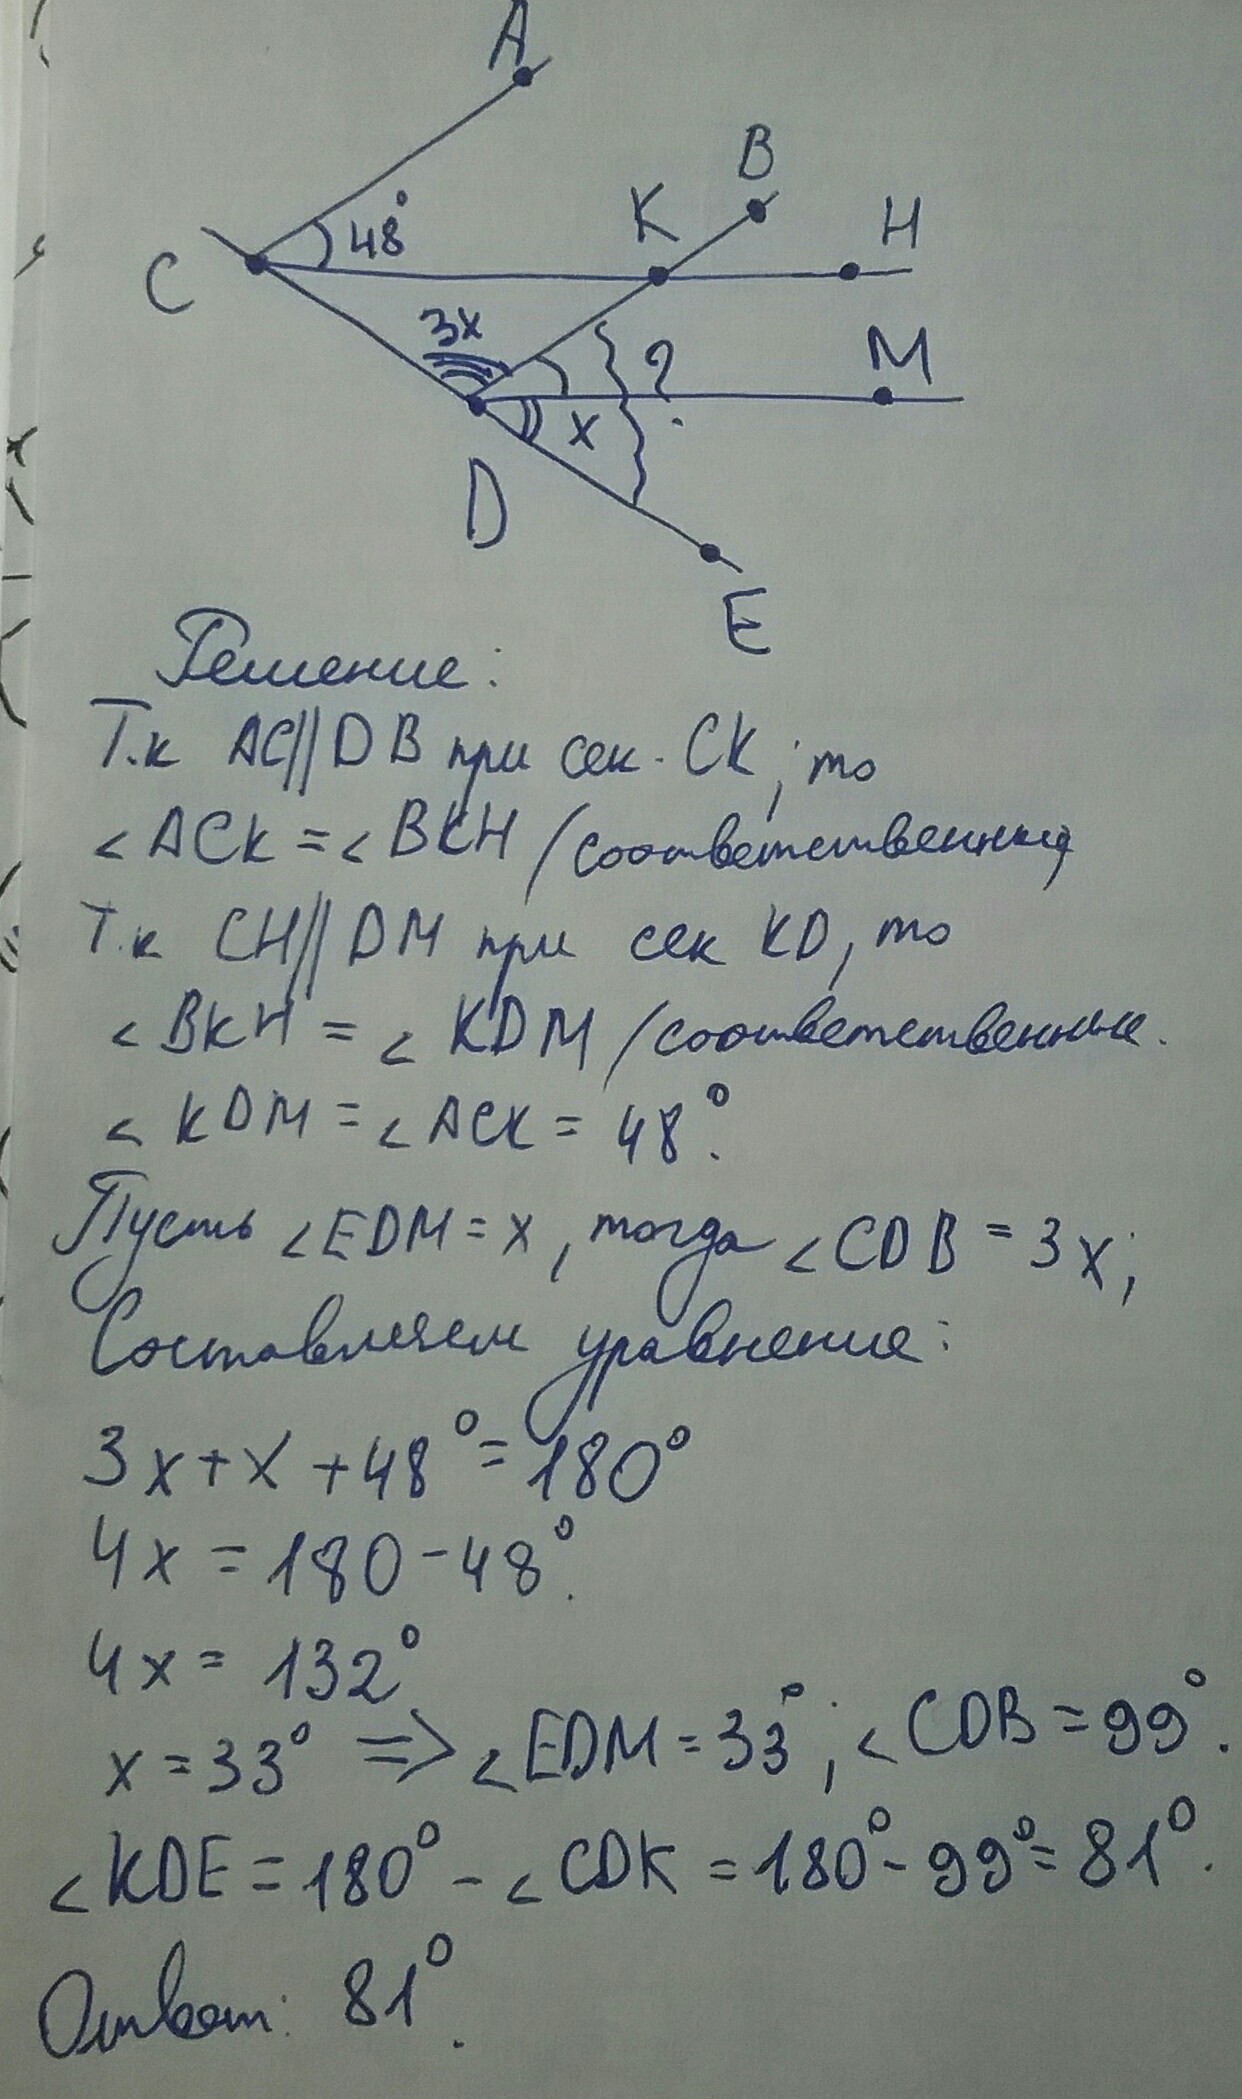 A
B
K
H
48°
C
3x
?
M
x
D
E
Решение:
Т.к AC||DB при сек. CK, то
∠ACK = ∠BKH (соответственные)
Т.к CH||DM при сек KD, то
∠BKH = ∠KDM (соответственные.
∠KDM = ∠ACK = 48°.
Пусть ∠EDM = x, тогда ∠CDB = 3x;
Составляем уравнение:
3x + x + 48° = 180°
4x = 180 - 48°.
4x = 132°
x = 33° => ∠EDM = 33°; ∠CDB = 99°.
∠KDE = 180° - ∠CDK = 180° - 99° = 81°.
Ответ: 81°.